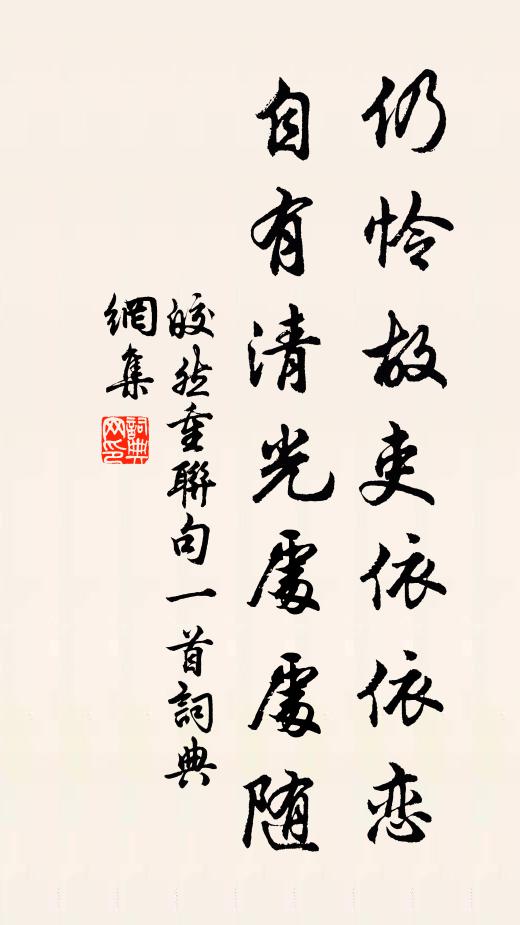 仍怜故吏依依恋
自有清光處處随
皎然重聯句一首詞典
網集
詞典网印